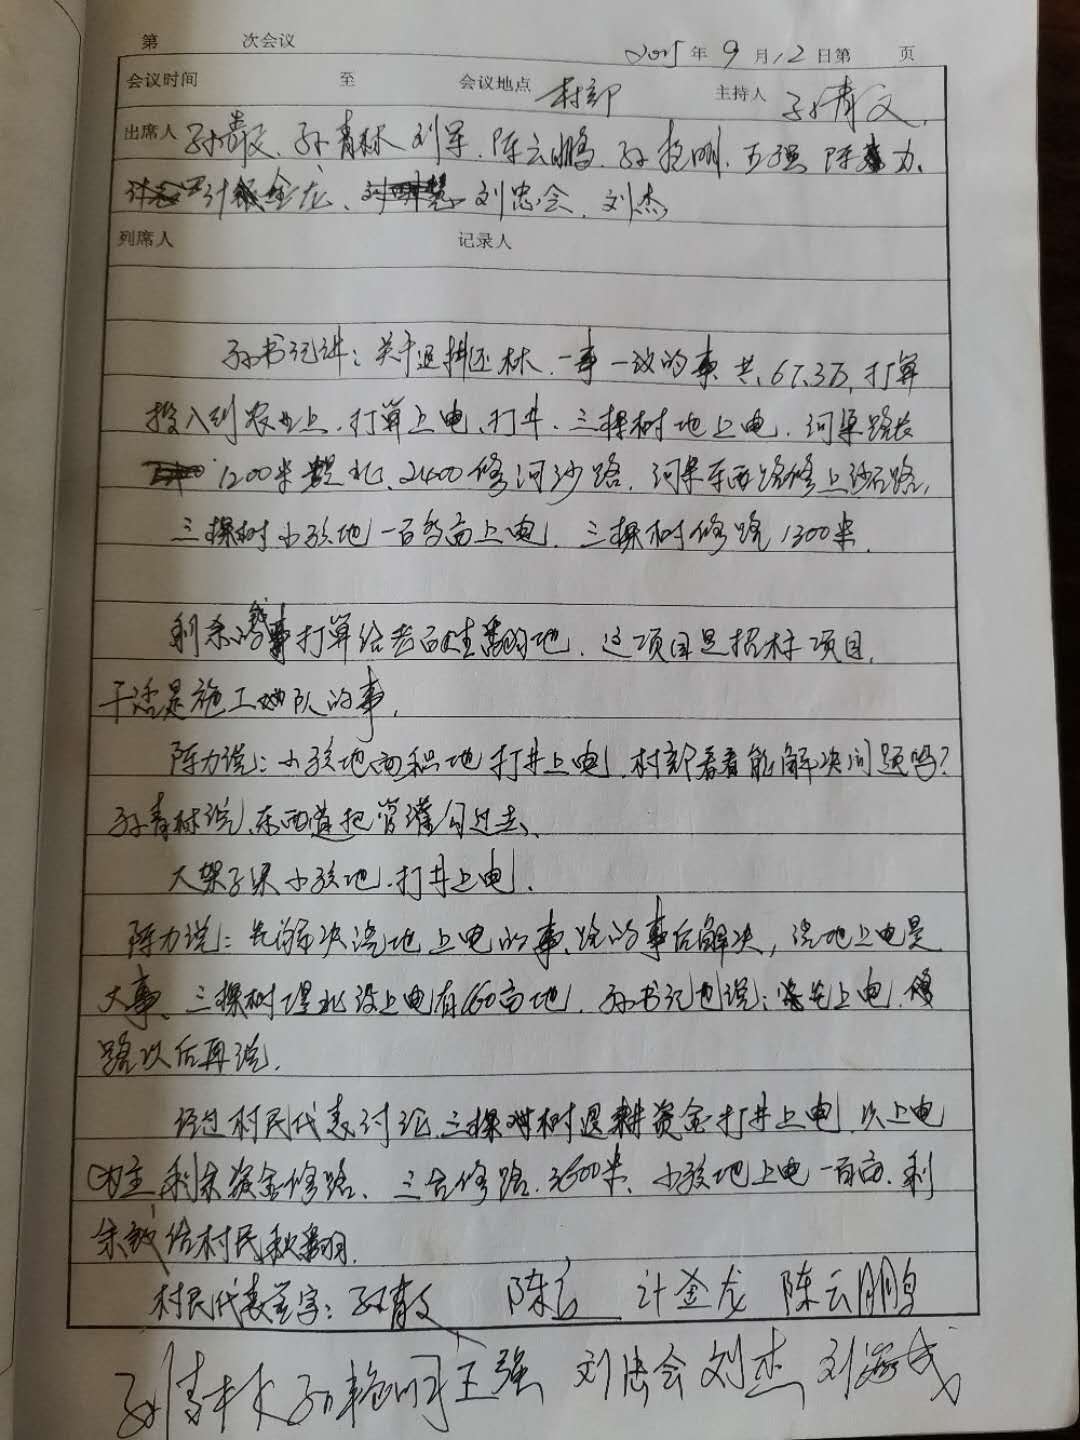 第 次会议 2015年9月12日第 页
会议时间 至 会议地点 村部 主持人 孙青文
出席人 孙青文、孙青林 刘军、陈云鹏、孙艳刚、王强 陈力、
计金龙、刘忠会、刘杰
列席人 记录人
孙书记讲：关于退耕还林、一事一议的事 共、67.3万，打算
投入到农业上、打算上电、打井、三棵树地上电、河渠路长
1200米 北、2400修河沙路、河渠东西路修上沙石路，
三棵树小孩地一百多亩上电、三棵树修路1300米、
剩余的钱打算给老百姓翻地、这项目是招标项目，
干活是施工队的事，
陈力说：小孩地面积地打井上电，村部看看能解决问题吗？
孙青林说、东西道把管灌勾过去、
大架子渠小孩地、打井上电、
陈力说：先解决浇地上电的事、路的事后解决，浇地上电是
大事、三棵树 北没上电有160亩地、孙书记也说：先上电、修
路以后再说，
经过村民代表讨论、三棵树退耕资金打井上电、以上电
为主 剩余资金修路、三合修路、3600米、小孩地上电一百亩、剩
余款给村民秋翻、
村民代表签字：孙青文 陈 计金龙 陈云鹏
孙青林 孙艳刚 王强 刘忠会 刘杰 刘海成